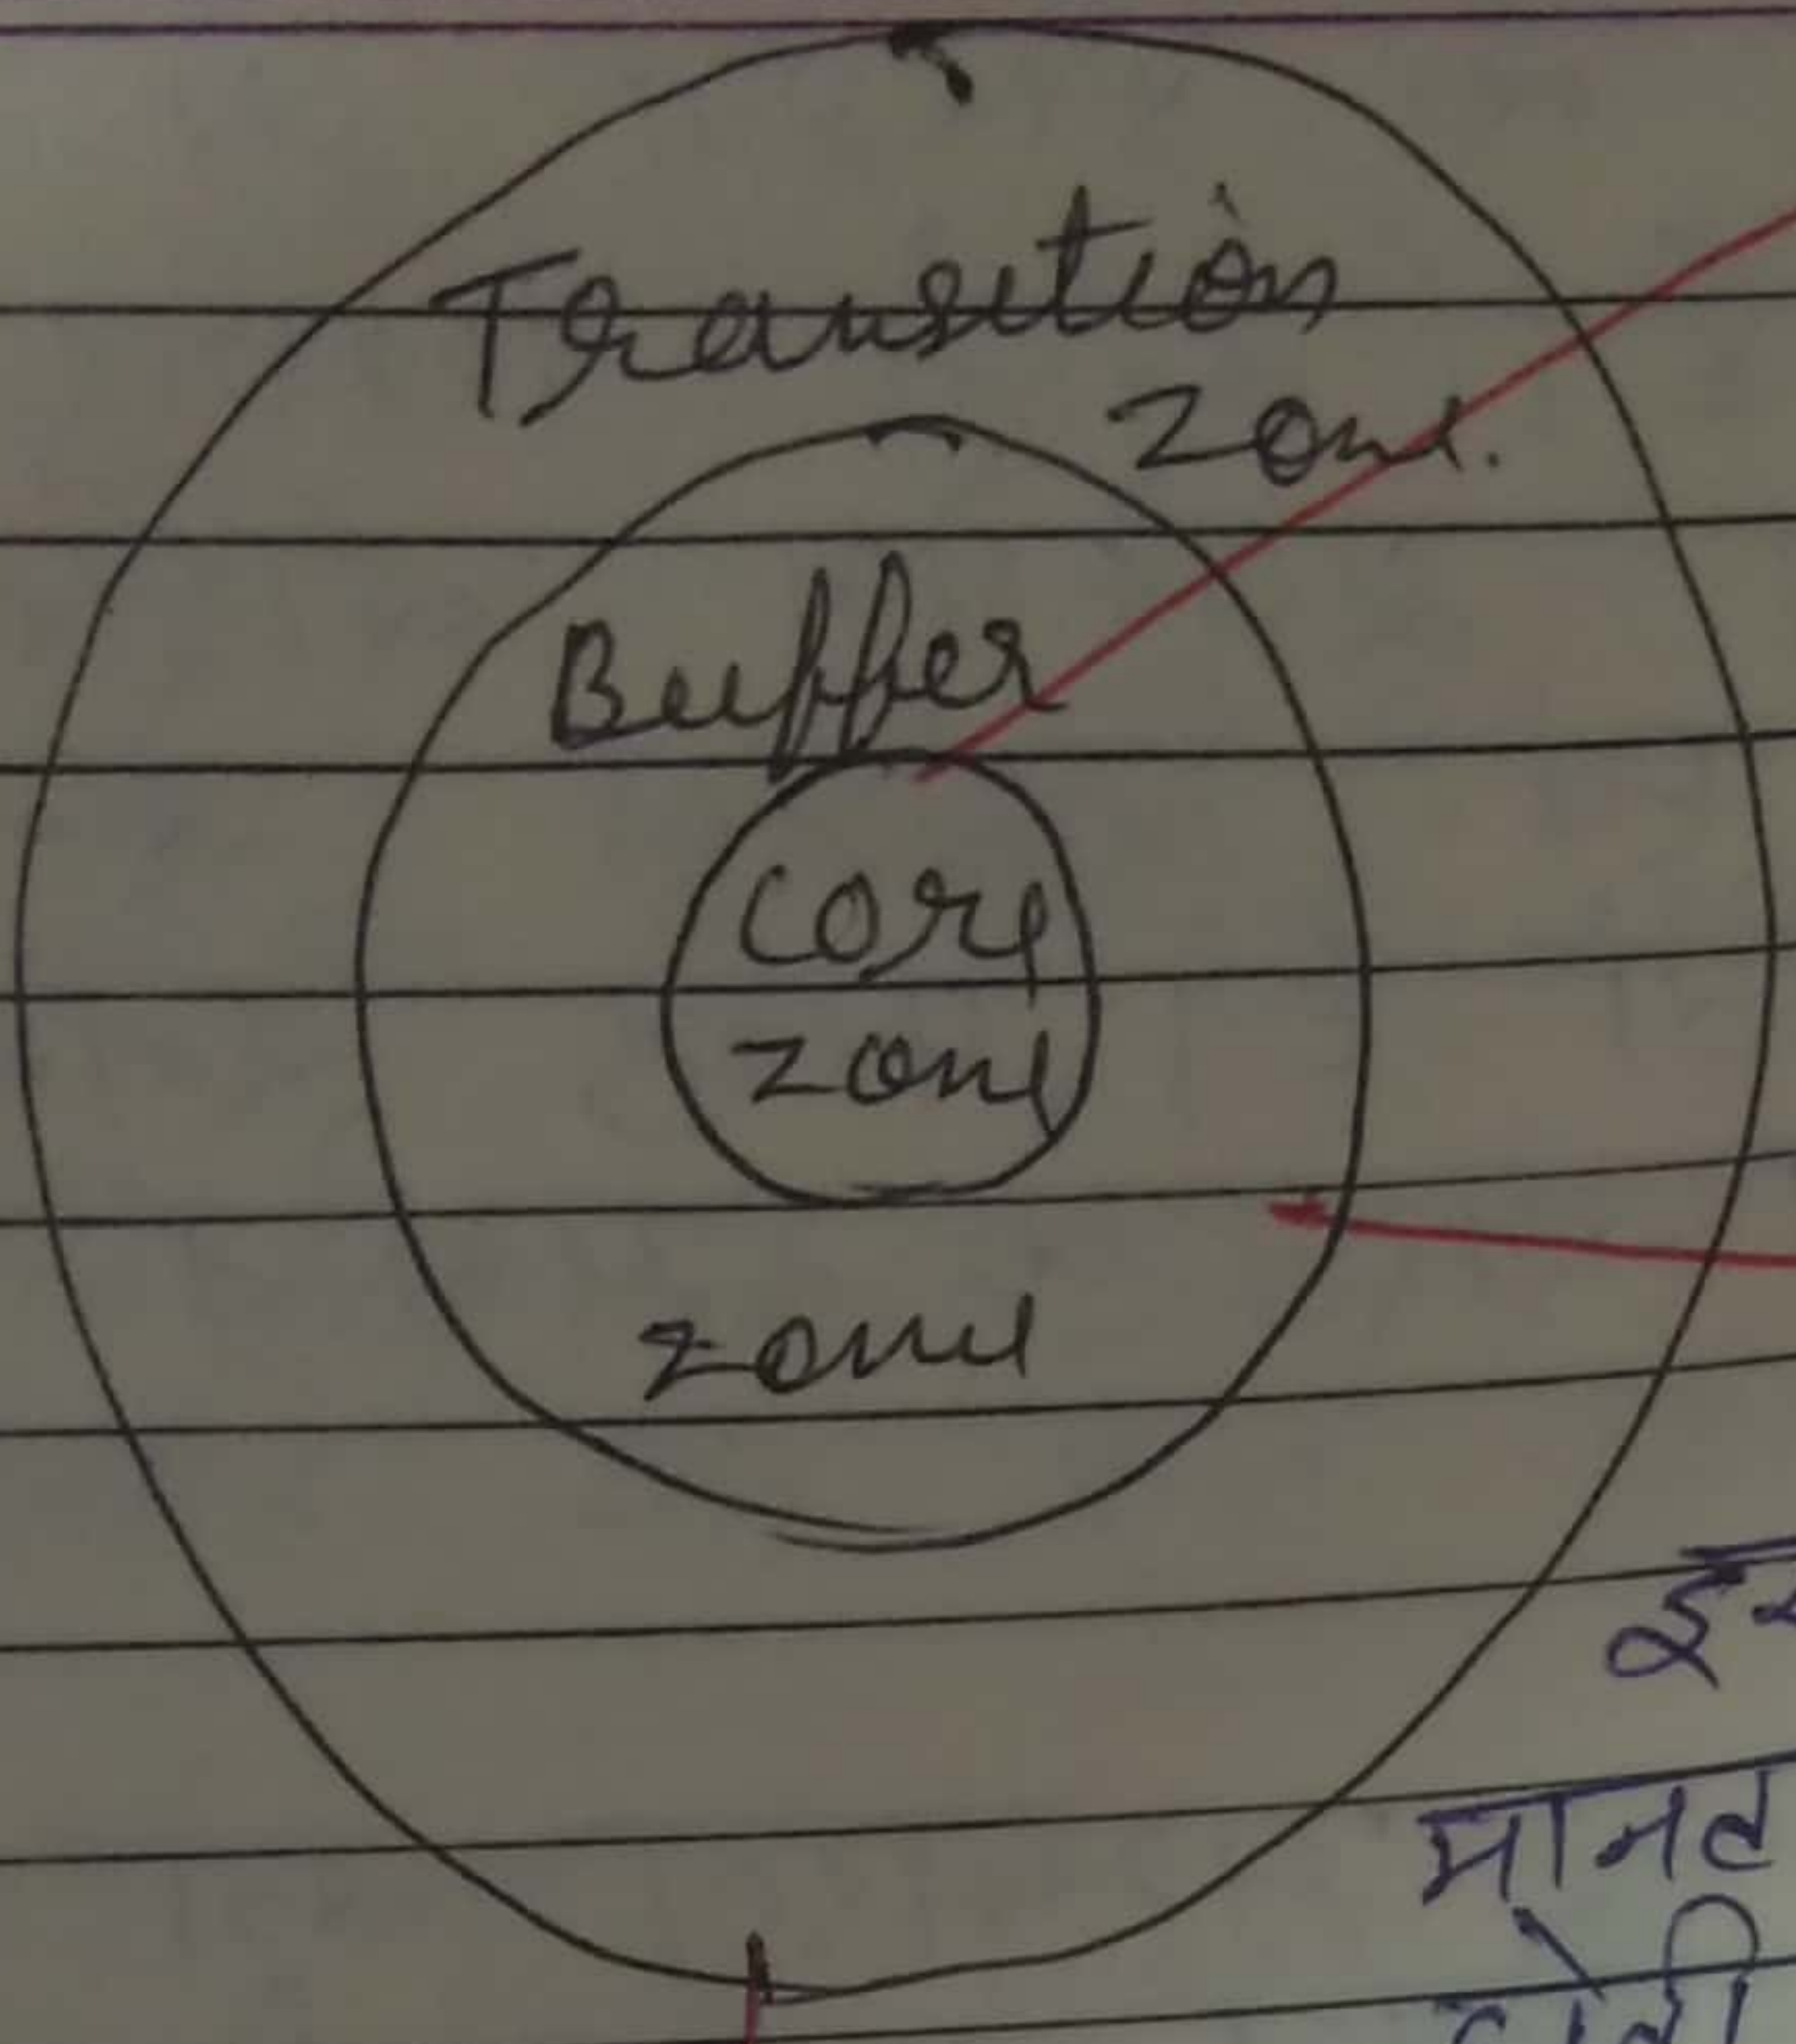 Transition
zone.
Buffer
core
zone
zone
मानव